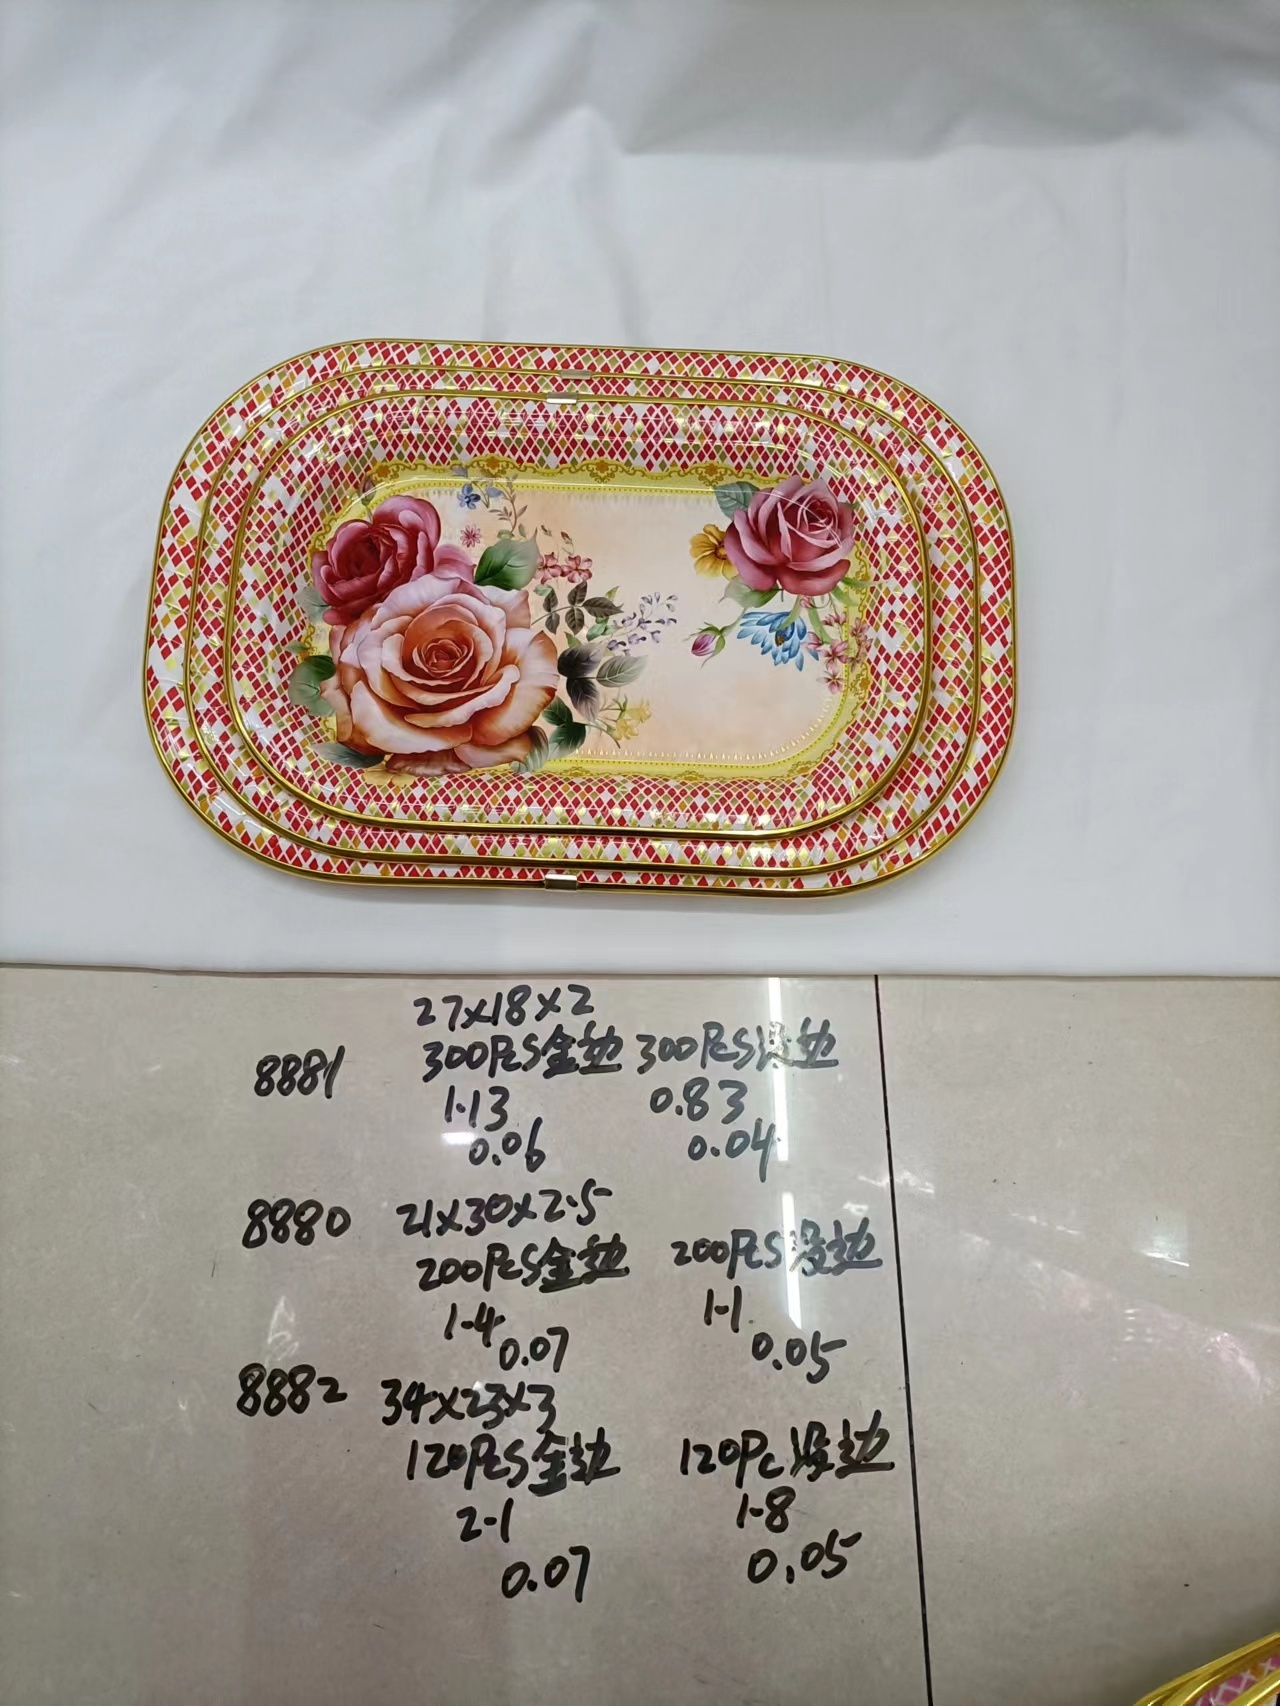 27x18x2
8881 300PCS金边 300PCS没边
1.13 0.83
0.06 0.04
8880 21x30x2.5
200PCS金边 200PCS没边
1.4 1.1
0.07 0.05
8882 34x23x3
120PCS金边 120Pc没边
2.1 1.8
0.07 0.05